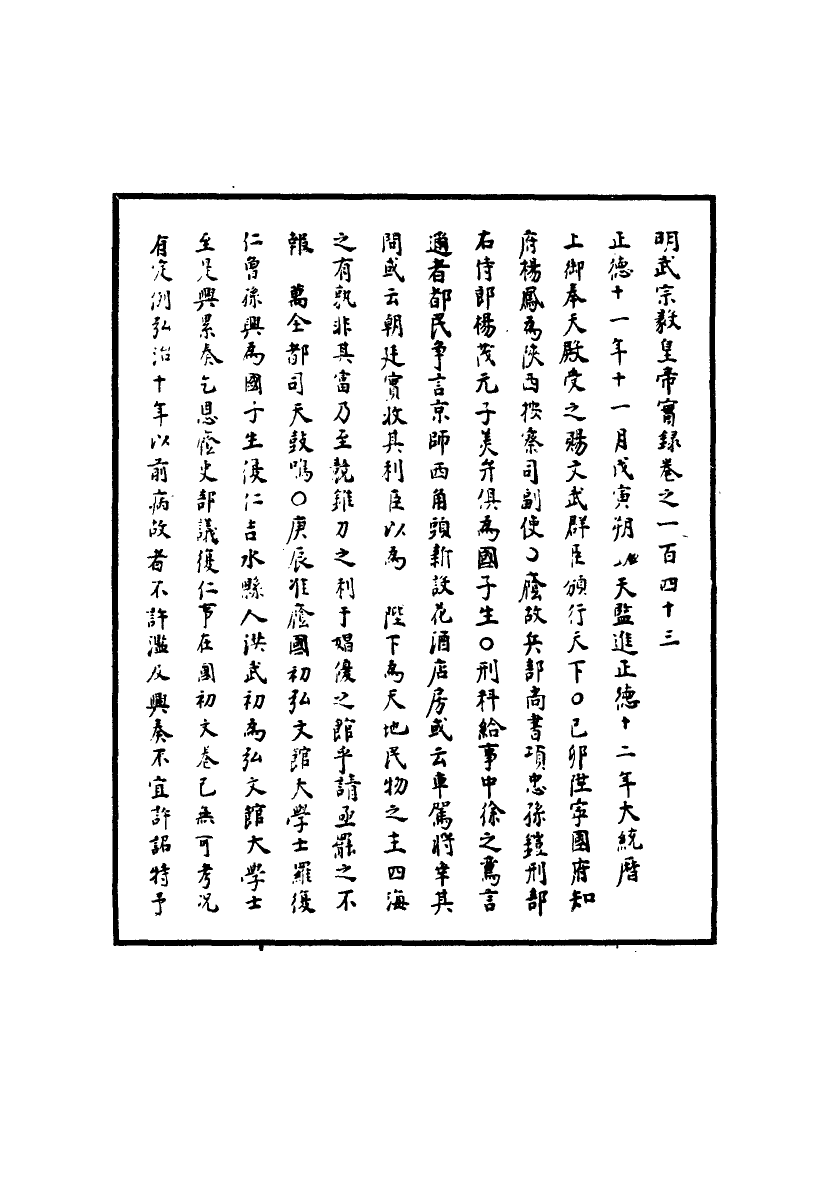 明武宗毅皇帝實錄卷之一百四十三
正德十一年十一月戊寅朔欽天監進正德十二年大統曆
上御奉天殿受之賜文武群臣頒行天下○己卯陞寧國府知
府楊鳳為陝西按察司副使○廕故兵部尚書項忠孫鏜刑部
右侍郎楊茂元子美弁俱為國子生○刑科給事中徐之鸞言
邇者都民爭言京師西角頭新設花酒店房或云車駕將幸其
間或云朝廷實收其利臣以為 陛下為天地民物之主四海
之有孰非其富乃至競錐刀之利于娼優之館乎請亟罷之不
報 萬全都司天鼓鳴○庚辰准廕國初弘文館大學士羅復
仁曾孫興為國子生復仁吉水縣人洪武初為弘文館大學士
至是興累奏乞恩廕吏部議復仁事在國初文卷已無可考況
有定例弘治十年以前病故者不許濫及興奏不宜許詔特予